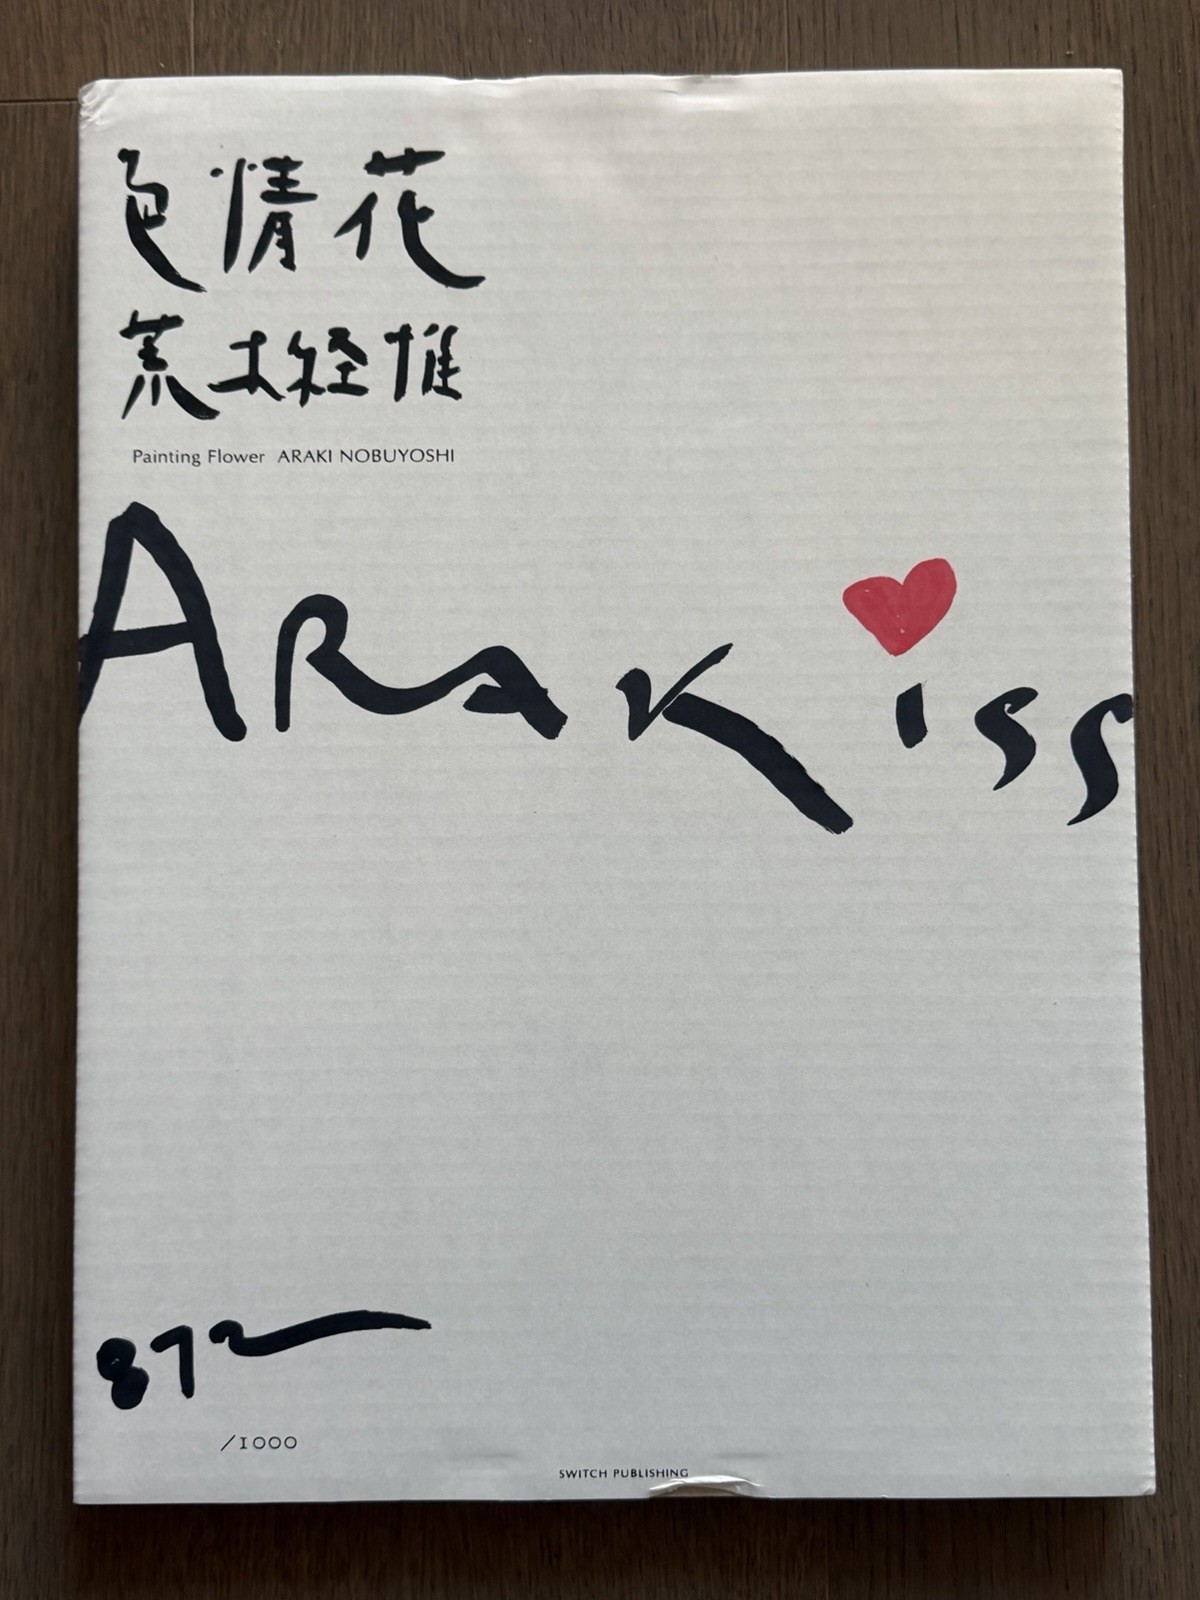 色情花
荒木経惟
Painting Flower ARAKI NOBUYOSHI
ARAKiss
872
/1000
SWITCH PUBLISHING